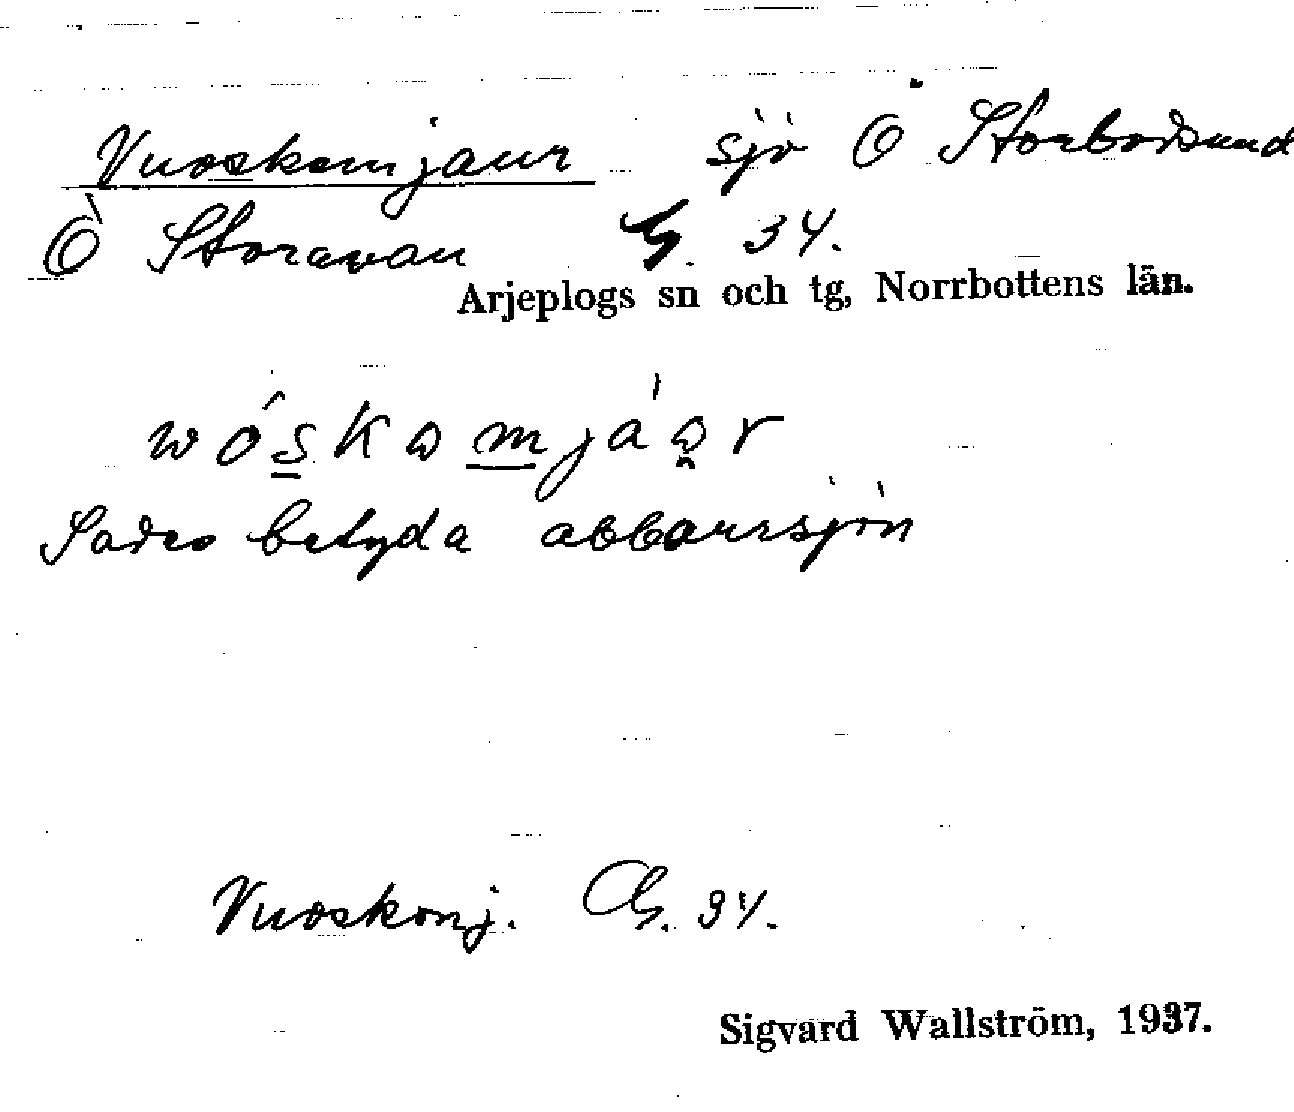 Vuoskomjaur sjö Ö Storbodsund
Ö Storavan G. 34.
Arjeplogs sn och tg, Norrbottens län.
wóskɷmjáɷ̯r
Sades betyda abborrsjön
Vuoskonj. G. 34.
Sigvard Wallström, 1937.